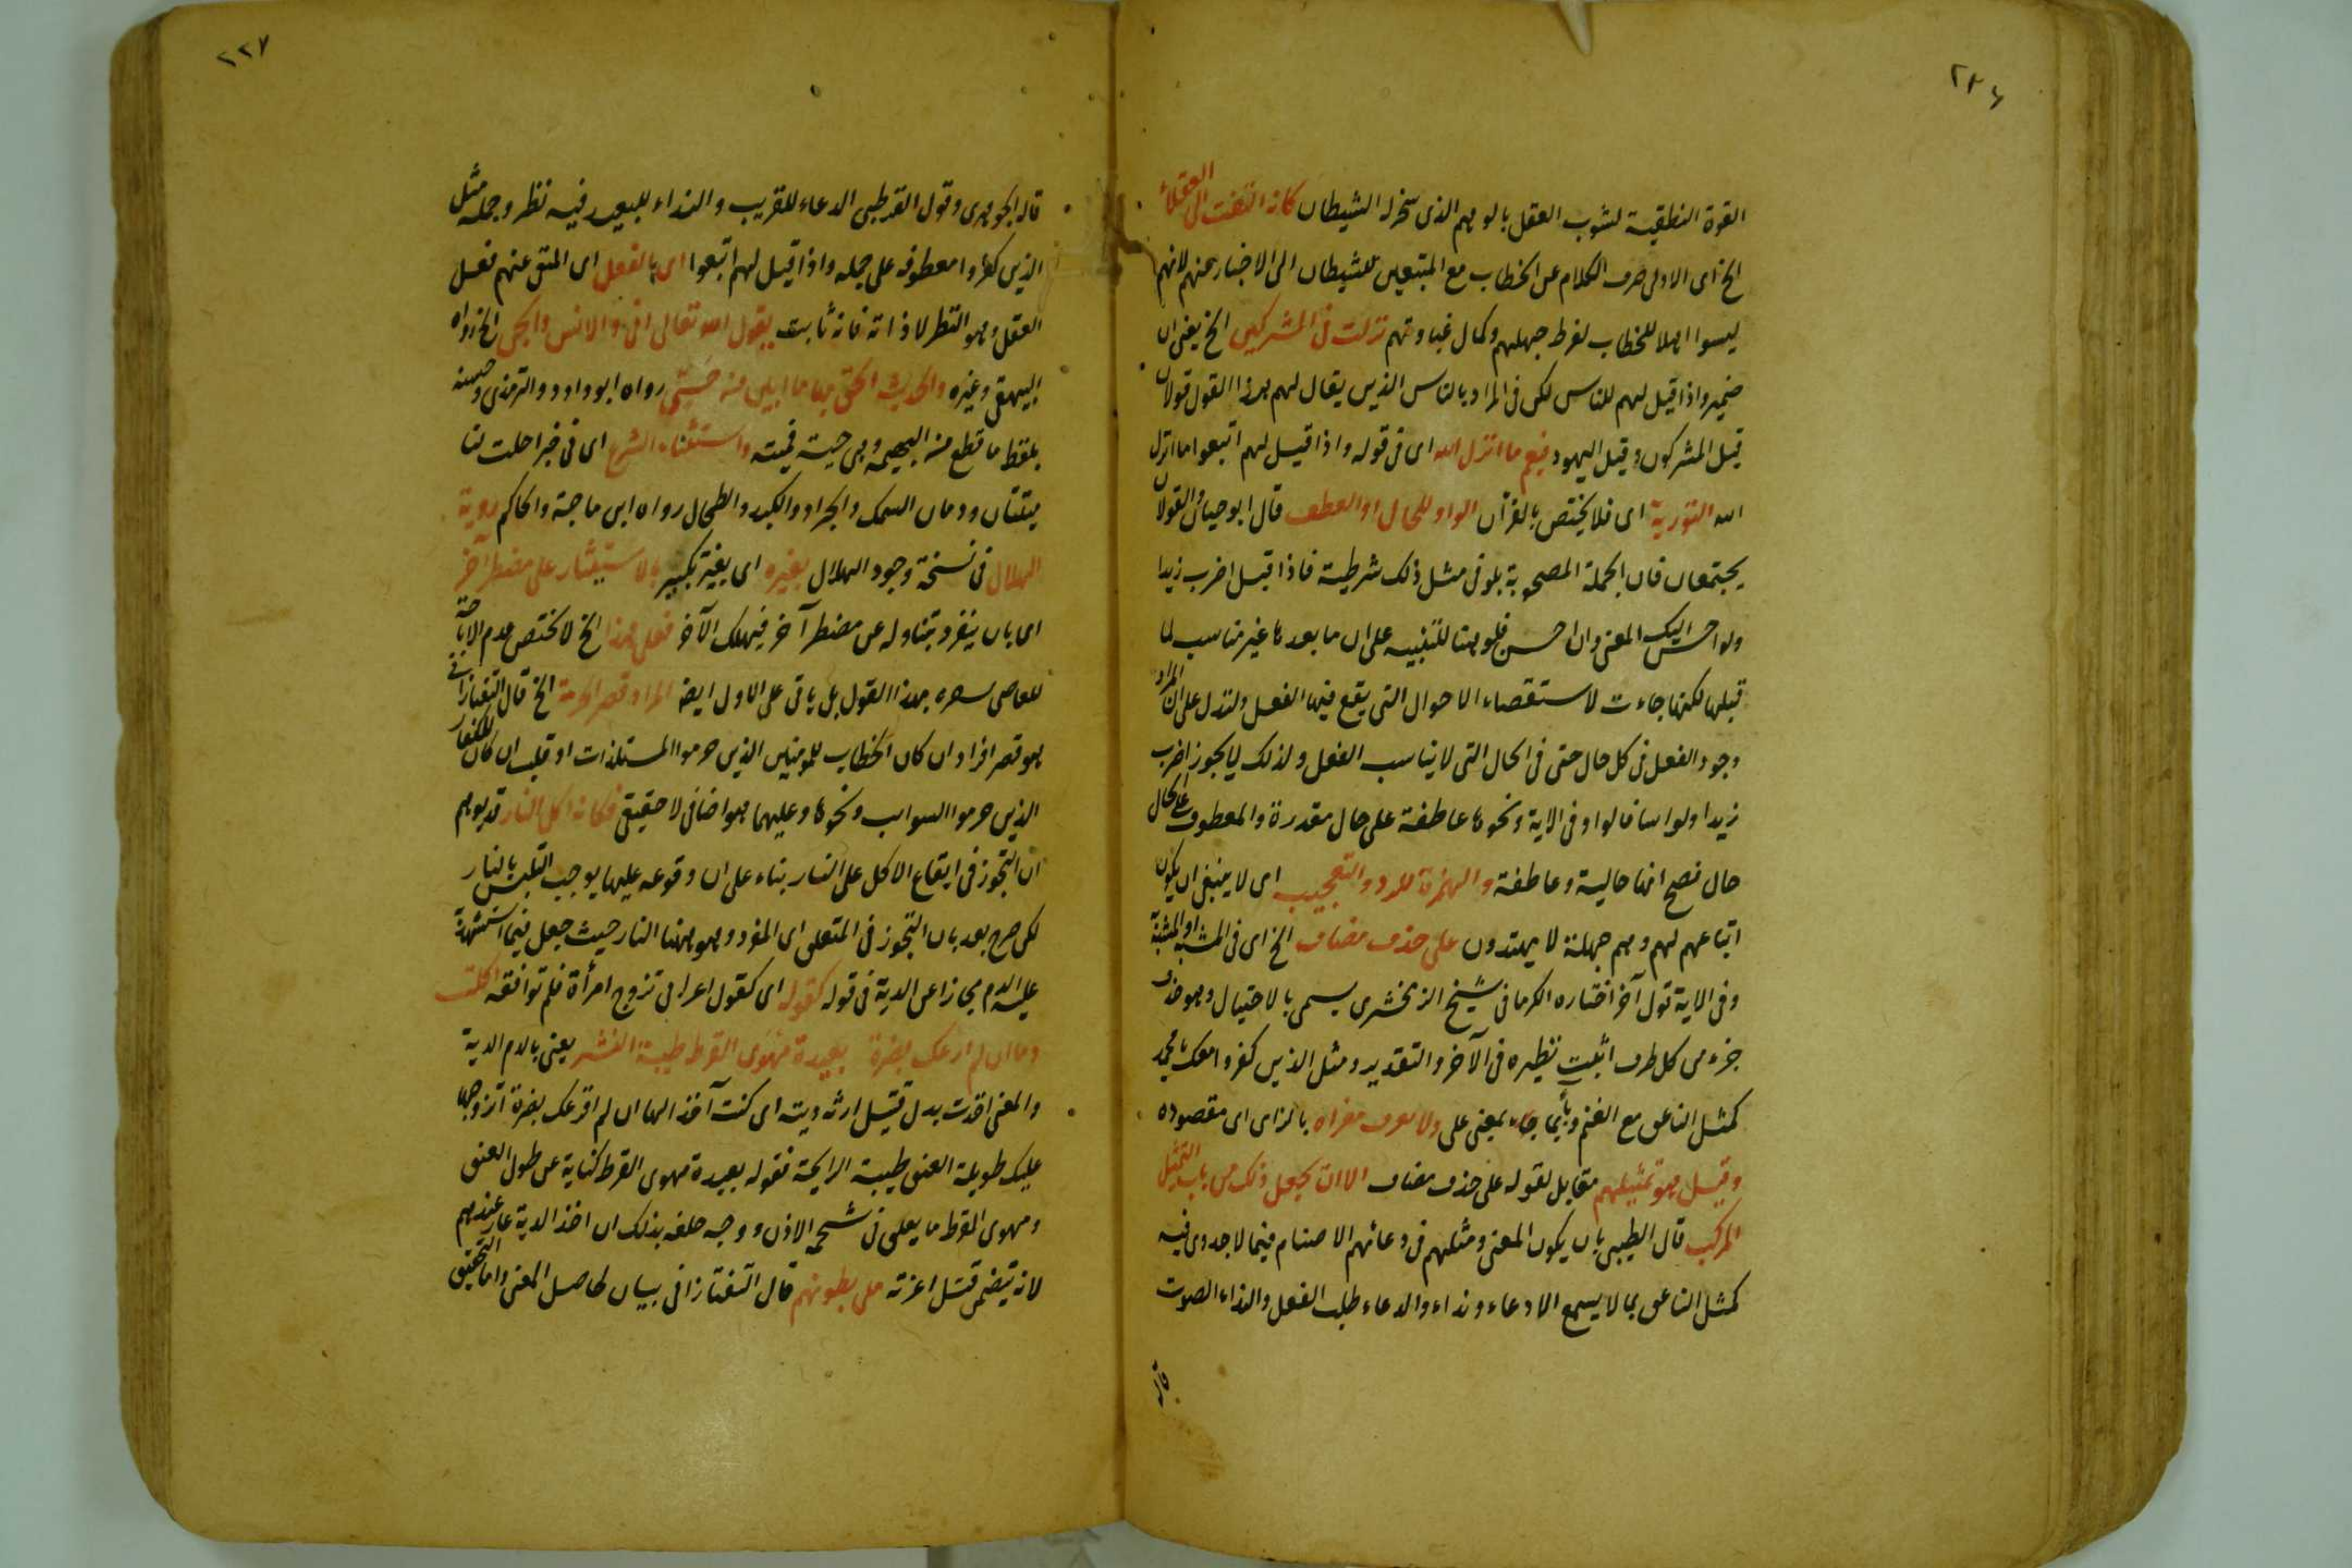 ٢٣٦
القوة النطقية لشوب العقل بالوهم الذى سخر له الشيطان كانه التفت الى العقلاء
الخ اى الاولى صرف الكلام عن الخطاب مع المتبعين للشيطان الى الاخبار عنهم لانهم
ليسوا اهلا للخطاب لفرط جهلهم وكمال غباوتهم نزلت فى المشركين الخ يعنى ان
ضمير واذا قيل لهم للناس لكن فى المراد بالناس الذين يقال لهم هذا القول قولان
قيل المشركون وقيل اليهود فيعم ما انزل الله اى فى قوله واذا قيل لهم اتبعوا ما انزل
الله التورية اى فلا يختص بالقرآن الواو للحال او العطف قال ابو حيان والقولان
يجتمعان فان الجملة المصحوبة بلو فى مثل ذلك شرطية فاذا قيل اضرب زيدا
ولو احسن اليك المعنى وان احسن فلو هنا للتنبيه على ان ما بعدها غير مناسب لما
قبلها لكنها جاءت لاستقصاء الاحوال التى يقع فيها الفعل ولتدل على ان المراد
وجود الفعل فى كل حال حتى فى الحال التى لا يناسب الفعل ولذلك لا يجوز اضرب
زيدا ولو اسا فالواو فى الاية ونحوها عاطفة على حال مقدرة والمعطوف على الحال
حال فصح انها حالية وعاطفة والهمزة للرد والتعجيب اى لا ينبغى ان يكون
اتباعهم لهم وهم جهلة لا يهتدون على حذف مضاف الخ اى فى المشبه او المشبه به
وفى الاية قول آخر اختاره الكرمانى شيخ الزمخشرى يسمى بالاحتيال وهو حذف
جزء من كل طرف اثبت نظيره فى الآخر والتقدير ومثل الذين كفروا معك يا محمد
كمثل الناعق مع الغنم وبأيما جاء بمعنى على ولا تعرف مغزاه بالزاى اى مقصوده
وقيل هو تمثيلهم مقابل لقوله على حذف مضاف الا ان يجعل ذلك من باب التمثيل
المركب قال الطيبى بان يكون المعنى ومثلهم فى دعائهم الاصنام فيما لا جدوى فيه
كمثل الناعق بما لا يسمع الا دعاء ونداء والدعاء طلب الفعل والنداء الصوت
قاله
٢٣٧
قاله الجوهرى وقول القرطبى الدعاء للقريب والنداء للبعيد فيه نظر وجملة مثل
الذين كفروا معطوفة على جملة واذا قيل لهم اتبعوا اى بالفعل اى المنفى عنهم فعل
العقل وهو النظر لا ذاته فانه ثابت يقول الله تعالى انى والانس والجن الخ رواه
البيهقى وغيره والحديث الحق بها ما ابين من حى رواه ابو داود والترمذى وحسنه
بلفظ ما قطع من البهيمة وهى حية فميتة واستثناه الشرع اى فى خبر احلت لنا
ميتتان ودمان السمك والجراد والكبد والطحال رواه ابن ماجة والحاكم روية
الهلال فى نسخة وجود الهلال بغيره اى بغير تكبير بالاستيثار على مضطر آخر
اى بان ينفرد بتناوله عن مضطر آخر فيهلك الآخر فعلى هذا الخ لا تختص عدم الاباحة
للعاصى بسفره بهذا القول بل ياتى على الاول ايضا المراد قصر الحرمة الخ قال التفتازانى
هو قصر افراد ان كان الخطاب للمومنين الذين حرموا المستلذات او قلب ان كان للكفار
الذين حرموا السوايب ونحوها وعليهما هو اضافى لا حقيقى فكانه اكل النار قد يوهم
ان التجوز فى ايقاع الاكل على النار بناء على ان وقوعه عليها يوجب التلبس بالنار
لكن صرح بعد بان التجوز فى المتعلق اى المفرد وهو ههنا النار حيث جعل فيما استشهد به
عليه الدم مجازا عن الدية فى قوله كقوله اى كقول اعرابى تزوج امرأة فلم توافقه اكلت
دما ان لم ارعك بضرة بعيدة مهوى القرط طيبة النشر يعنى بالدم الدية
والمعنى اخذت بدل قتيل ارثه ديته اى كنت آخذ الها ان لم افزعك بضرة اتزوجها
عليك طويلة العنق طيبة الرايحة فقوله بعيدة مهوى القرط كناية عن طول العنق
ومهوى القرط ما يعلق فى شحمة الاذن ووجه حلفه بذلك ان اخذ الدية عار عندهم
لانه يتضمن قتل اعزته ملى بطونهم قال التفتازانى بيان لحاصل المعنى واما التحقيق